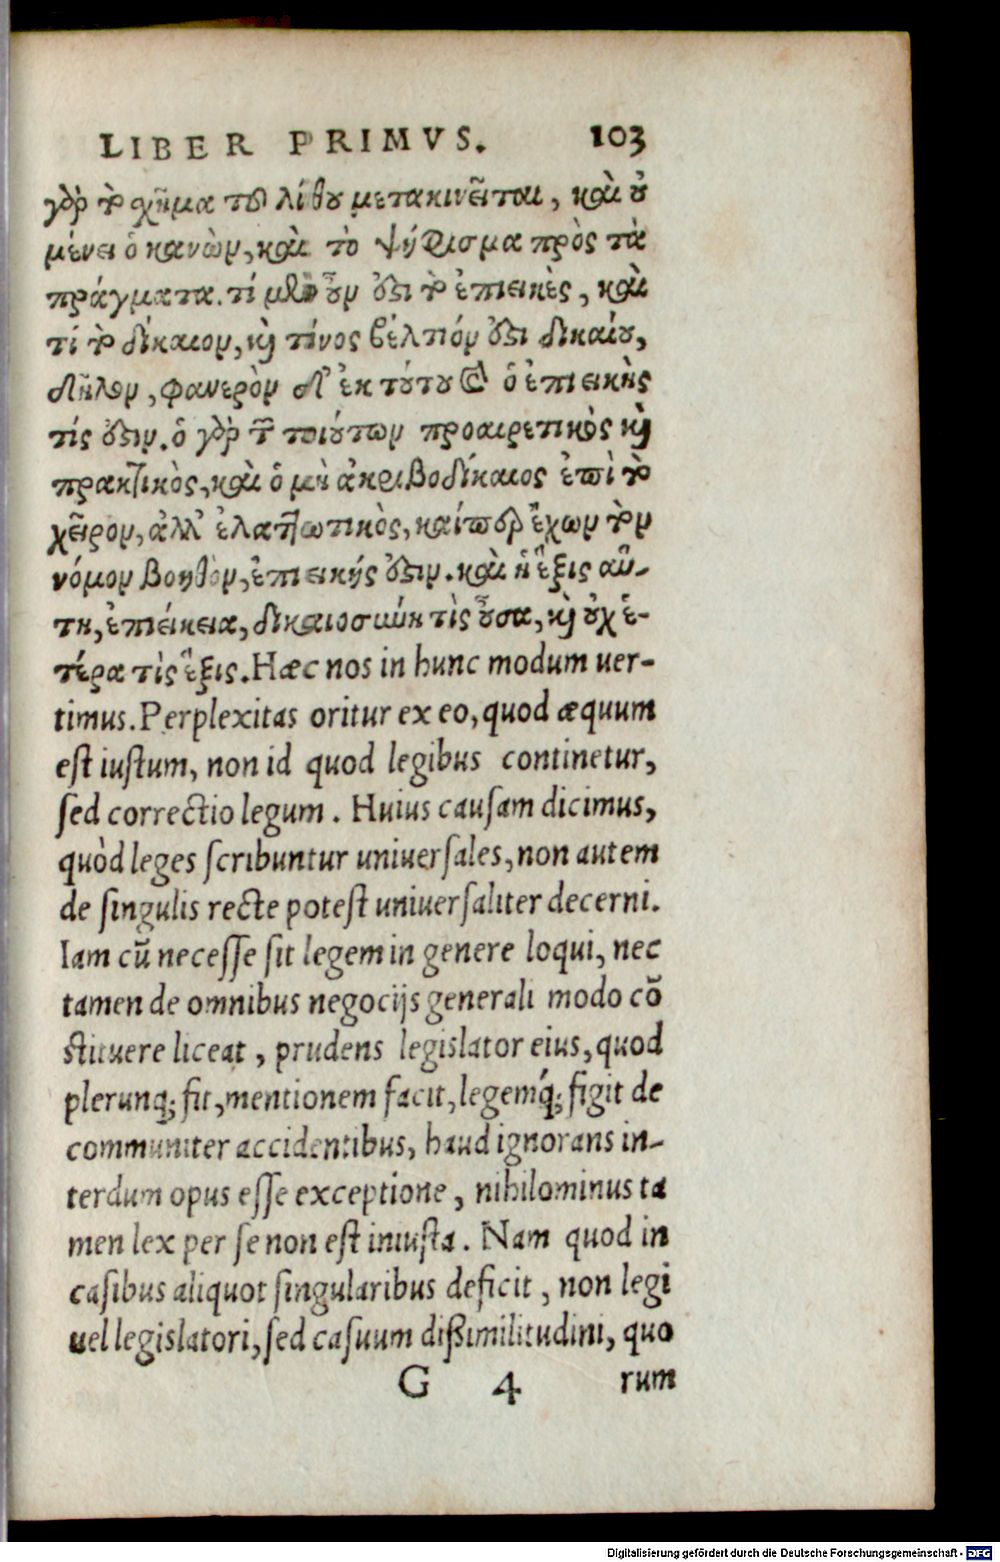 LIBER PRIMVS. 103
γὰρ τὸ σχῆμα τοῦ λίθου μετακινεῖται, καὶ οὐ
μένει ὁ κανὼν, καὶ τὸ ψήφισμα πρὸς τὰ
πράγματα. τί μὲν οὖν ὅτι τὸ ἐπιεικὲς, καὶ
τί τὸ δίκαιον, καὶ τίνος βέλτιόν ὅτι δικαίου,
δῆλον, φανερὸν δ' ἐκ τούτου καὶ ὁ ἐπιεικὴς
τίς ὅτιν. ὁ γὰρ τῶν τοιούτων προαιρετικὸς καὶ
πρακτικὸς, καὶ ὁ μὴ ἀκριβοδίκαιος ἐπὶ τὸ
χεῖρον, ἀλλ' ἐλαττωτικὸς, καίπερ ἔχων τὸν
νόμον βοηθὸν, ἐπιεικής ὅτιν. καὶ ἡ ἕξις αὕ-
τη, ἐπιείκεια, δικαιοσύνη τὶς οὖσα, καὶ οὐχ ἑ-
τέρα τὶς ἕξις. Hæc nos in hunc modum uer-
timus. Perplexitas oritur ex eo, quod æquum
est iustum, non id quod legibus continetur,
sed correctio legum. Huius causam dicimus,
quòd leges scribuntur uniuersales, non autem
de singulis recte potest uniuersaliter decerni.
Iam cũ necesse sit legem in genere loqui, nec
tamen de omnibus negocijs generali modo cõ
stituere liceat, prudens legislator eius, quod
plerunq; fit, mentionem facit, legemq́; figit de
communiter accidentibus, haud ignorans in-
terdum opus esse exceptione, nihilominus ta
men lex per se non est iniusta. Nam quod in
casibus aliquot singularibus deficit, non legi
uel legislatori, sed casuum dißimilitudini, quo
G 4 rum
Digitalisierung gefördert durch die Deutsche Forschungsgemeinschaft - DFG